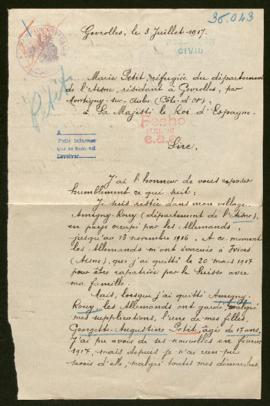 36.043
Gevrolles, le 3 Juillet 1917.
CIVIL
Petit
Marie Petit, réfugiée du département
de l'Aisne résidant à Gevrolles, par
Montigny-sur-Aube (Côte d'Or)
à Sa Majesté le Roi d'Espagne.
Fecho
e.a.
A
Pedir informes
Sire,
J'ai l'honneur de vous exposer
humblement ce qui suit:
Je suis restée dans mon village,
Amigny-Rouy (département de l'Aisne),
en pays occupé par les Allemands,
jusqu'au 13 novembre 1916. A ce moment
les Allemands m'ont envoyée à
(Aisne), que j'ai quitté le 20 mars 1917
pour être rapatriée par la Suisse avec
ma famille.
Mais, lorsque j'ai quitté Amigny-
Rouy, les Allemands ont gardé, malgré
mes supplications, l'une de mes filles,
Georgette-Augustine Petit, âgée de 17 ans.
J'ai pu avoir de ses nouvelles en février
1917, mais depuis je n'ai rien pu
savoir d'elle, malgré toutes mes démarches